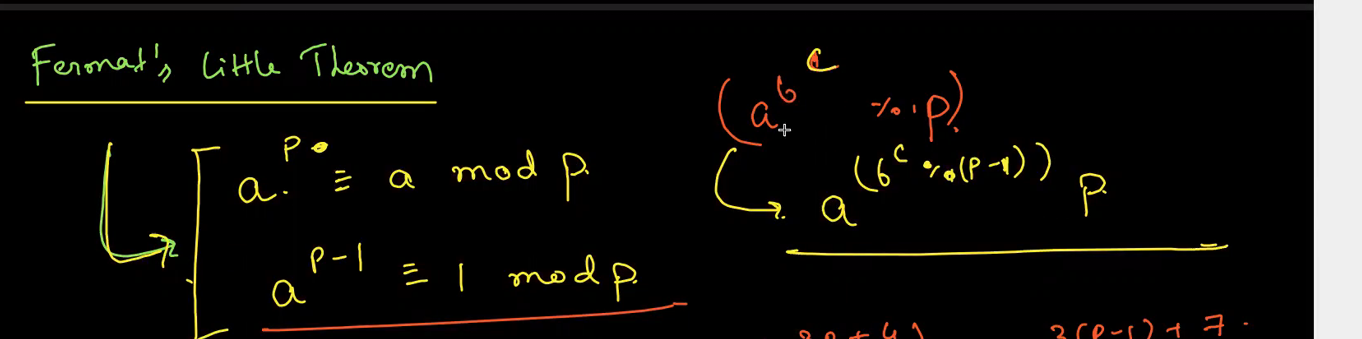 Fermat's Little Theorem
a^p ≡ a mod p.
a^(p-1) ≡ 1 mod p.
(a^b^c % p)
a^(b^c % (p-1)) p
3(p-1) + 7.